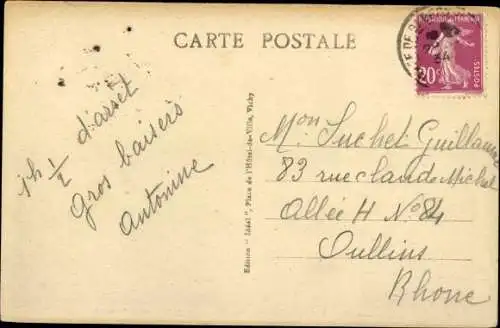 CARTE POSTALE
REPUBLIQUE FRANÇAISE
20c
POSTES
1h ½ d'arset
Gros baisers
Antonine
Edition "Idéal", Place de l'Hôtel-de-Ville, Vichy
Mon Suchet Guillaume
83 rue claude Michel
Allée H No 84
Oullins
Rhone